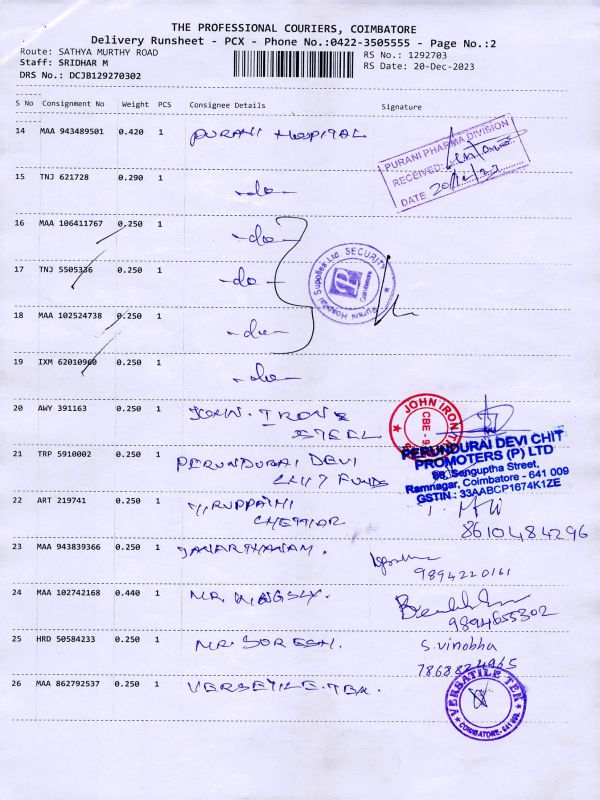 THE PROFESSIONAL COURIERS, COIMBATORE
Delivery Runsheet - PCX - Phone No.:0422-3505555 - Page No.:2
Route: SATHYA MURTHY ROAD
Staff: SRIDHAR M
DRS No.: DCJB129270302
RS No.: 1292703
RS Date: 20-Dec-2023
S No Consignment No Weight PCS Consignee Details Signature
14 MAA 943489501 0.420 1 PURANI HOSPITAL
PURANI PHARMA DIVISION
RECEIVED
DATE 20/12/23
15 TNJ 621728 0.290 1 -do-
16 MAA 106411767 0.250 1 -do-
17 TNJ 5505336 0.250 1 -do-
Purani Hospital Supplies Ltd SECURITY
Coimbatore
18 MAA 102524738 0.250 1 -do-
19 IXM 62010960 0.250 1 -do-
20 AWY 391163 0.250 1 JOHN. IRON &
STEEL
JOHN IRON
CBE - 9
21 TRP 5910002 0.250 1 PERUNDURAI DEVI
CHIT FUNDS
PERUNDURAI DEVI CHIT
PROMOTERS (P) LTD
Senguptha Street,
Ramnagar, Coimbatore - 641 009
GSTIN : 33AABCP1674K1ZE
22 ART 219741 0.250 1 TIRUPPATHI
CHETTIAR
8610484296
23 MAA 943839366 0.250 1 JANARTHANAM.
9894220161
24 MAA 102742168 0.440 1 MR. KINGSLY.
9894655302
25 HRD 50584233 0.250 1 MR. SURESH.
S. Vinobha
7868824965
26 MAA 862792537 0.250 1 VERSETILE. TEX.
VERSATILE TEK
COIMBATORE